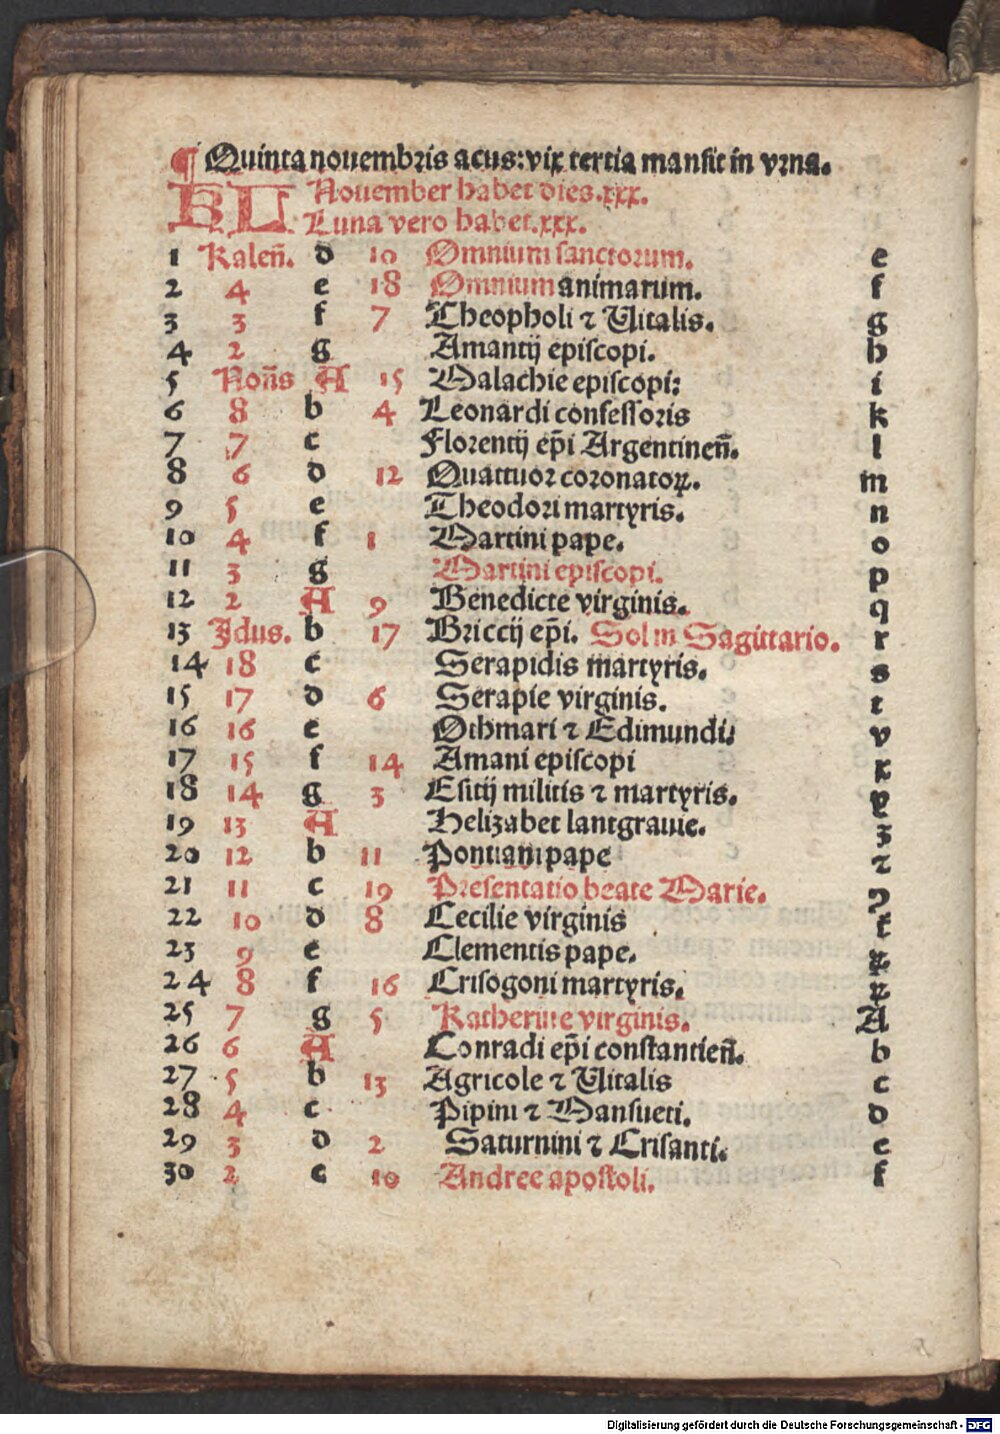 ¶ Quinta nouembris acus: vix tertia mansit in vrna.
KL Nouember habet dies.xxx.
Luna vero habet.xxx.
1 Kaleñ. d 10 Omnium sanctorum. e
2 4 e 18 Omnium animarum. f
3 3 f 7 Theopholi ⁊ Uitalis. g
4 2 g Amantij episcopi. h
5 Noñs A 15 Malachie episcopi: i
6 8 b 4 Leonardi confessoris k
7 7 c Florentij ep̃i Argentineñ. l
8 6 d 12 Quattuor coronatoꝝ. m
9 5 e Theodori martyris. n
10 4 f 1 Martini pape. o
11 3 g Martini episcopi. p
12 2 A 9 Benedicte virginis. q
13 Idus. b 17 Briccij ep̃i. Sol in Sagittario. r
14 18 c Serapidis martyris. s
15 17 d 6 Serapie virginis. t
16 16 e Othmari ⁊ Edimundi. v
17 15 f 14 Amani episcopi x
18 14 g 3 Esitij militis ⁊ martyris. y
19 13 A Helizabet lantgrauie. z
20 12 b 11 Pontiani pape ⁊
21 11 c 19 Presentatio beate Marie. ꝯ
22 10 d 8 Cecilie virginis t
23 9 e Clementis pape.
24 8 f 16 Crisogoni martyris.
25 7 g 5 Katherine virginis. A
26 6 A Conradi ep̃i constantieñ. b
27 5 b 13 Agricole ⁊ Uitalis c
28 4 c Pipini ⁊ Mansueti. d
29 3 d 2 Saturnini ⁊ Crisanti. e
30 2 e 10 Andree apostoli. f
Digitalisierung gefördert durch die Deutsche Forschungsgemeinschaft - DFG